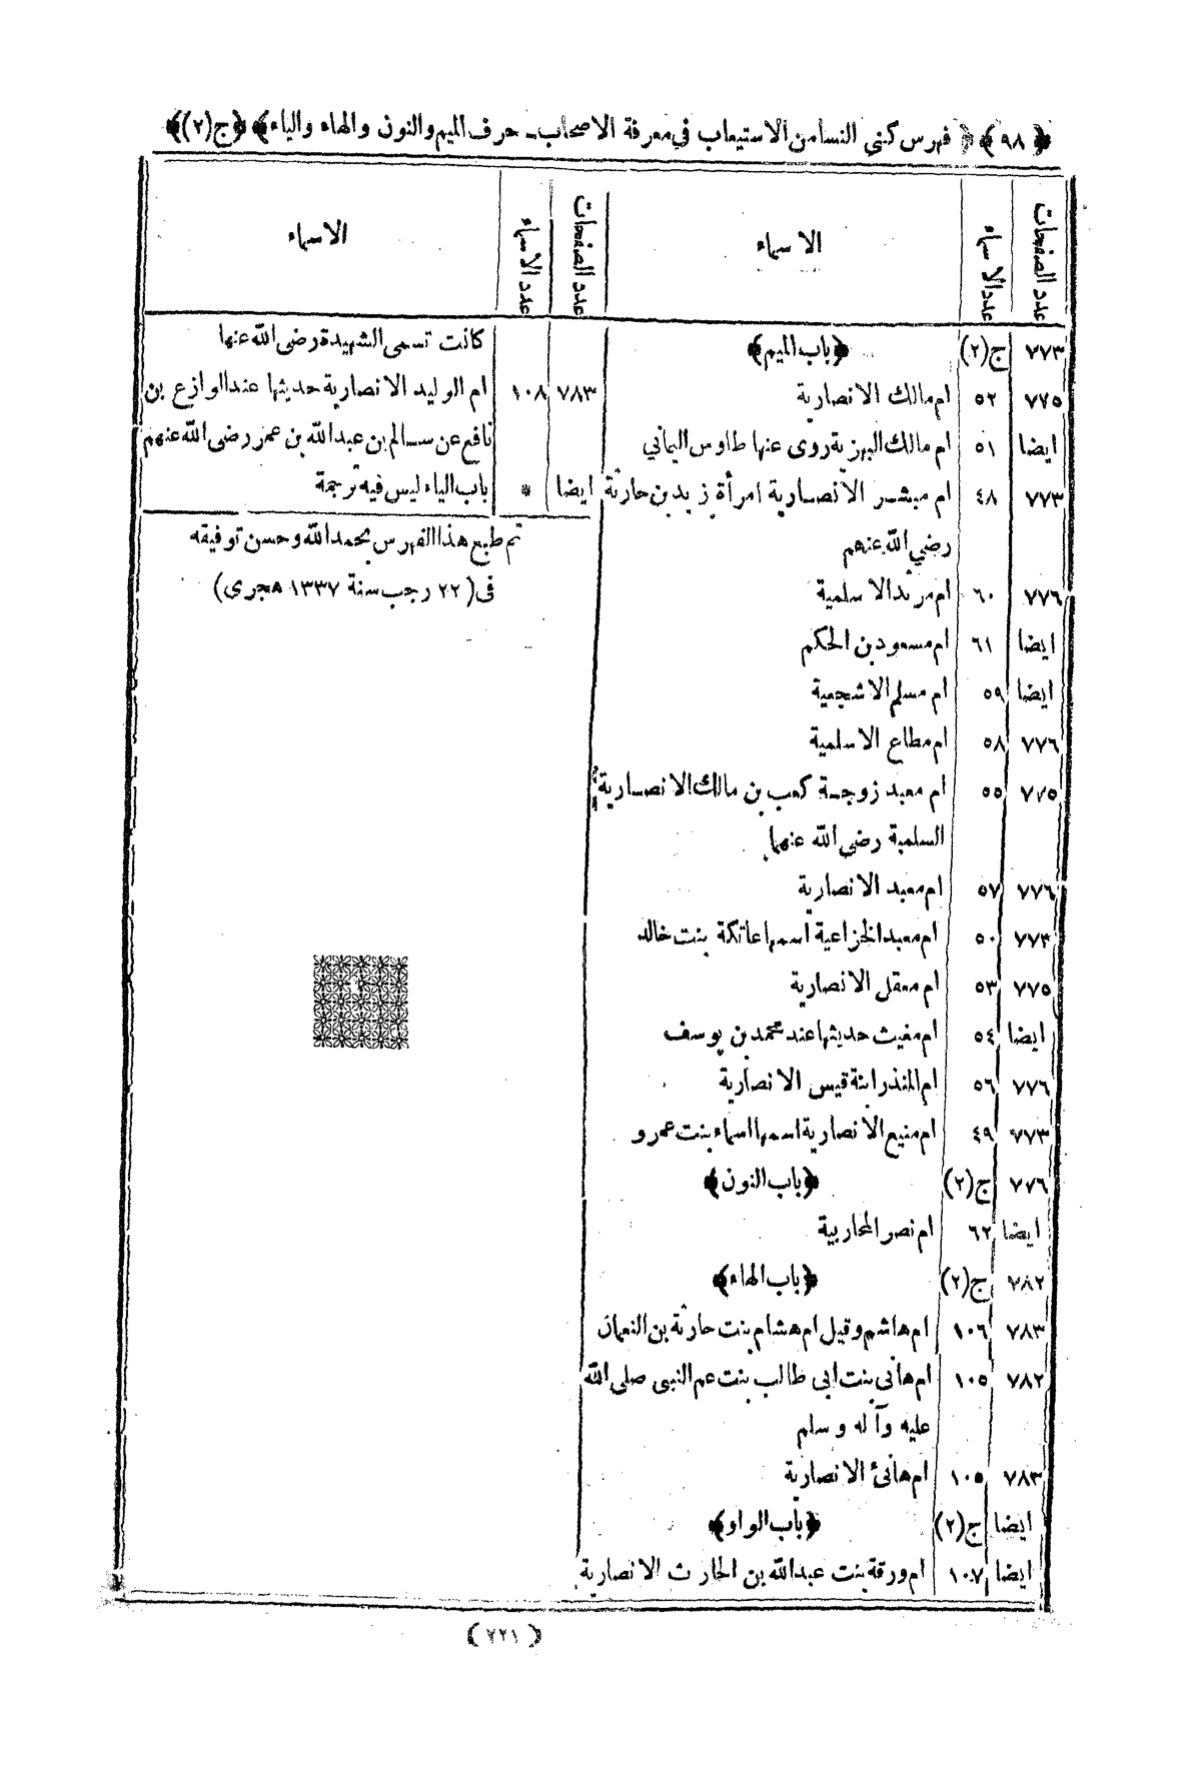 ﴿٩٨﴾ ﴿فهرس كنى النسا من الاستيعاب في معرفة الاصحاب ـ حرف الميم والنون والهاء والياء﴾ ﴿ج(٢)﴾
عدد الصفحات عدد الاسماء الاسماء
٧٧٣ ج(٢) ﴿باب الميم﴾
٧٧٥ ٥٢ ام مالك الانصارية
ايضا ٥١ ام مالك البهزية روى عنها طاوس اليماني
٧٧٣ ٤٨ ام مبشر الانصارية امرأة زيد بن حارثة
رضي الله عنهم
٧٧٦ ٦٠ ام مرثد الاسلمية
ايضا ٦١ ام مسعود بن الحكم
ايضا ٥٩ ام مسلم الاشجعية
٧٧٦ ٥٨ ام مطاع الاسلمية
٧٧٥ ٥٥ ام معبد زوجة كعب بن مالك الانصارية
السلمية رضي الله عنهما
٧٧٦ ٥٧ ام معبد الانصارية
٧٧٣ ٥٠ ام معبد الخزاعية اسمها عاتكة بنت خالد
٧٧٥ ٥٣ ام معقل الانصارية
ايضا ٥٤ ام مغيث حديثها عند محمد بن يوسف
٧٧٦ ٥٦ ام المنذر ابنة قيس الانصارية
٧٧٣ ٤٩ ام منيع الانصارية اسمها اسماء بنت عمرو
٧٧٦ ج(٢) ﴿باب النون﴾
ايضا ٦٢ ام نصر المحاربية
٧٨٢ ج(٢) ﴿باب الهاء﴾
٧٨٣ ١٠٦ ام هاشم وقيل ام هشام بنت حارثة بن النعمان
٧٨٢ ١٠٥ ام هانى بنت ابى طالب بنت عم النبى صلى الله
عليه وآله وسلم
٧٨٣ ١٠٥ ام هانئ الانصارية
ايضا ج(٢) ﴿باب الواو﴾
ايضا ١٠٧ ام ورقة بنت عبدالله بن الحارث الانصارية
عدد الصفحات عدد الاسماء الاسماء
كانت تسمى الشهيدة رضى الله عنها
٧٨٣ ١٠٨ ام الوليد الانصارية حديثها عند الوازع بن
نافع عن سالم بن عبدالله بن عمر رضى الله عنهم
ايضا * باب الياء ليس فيه ترجمة
تم طبع هذا الفهرس بحمد الله وحسن توفيقه
فى (٢٢ رجب سنة ١٣٣٧ هجرى)
(٧٢١)